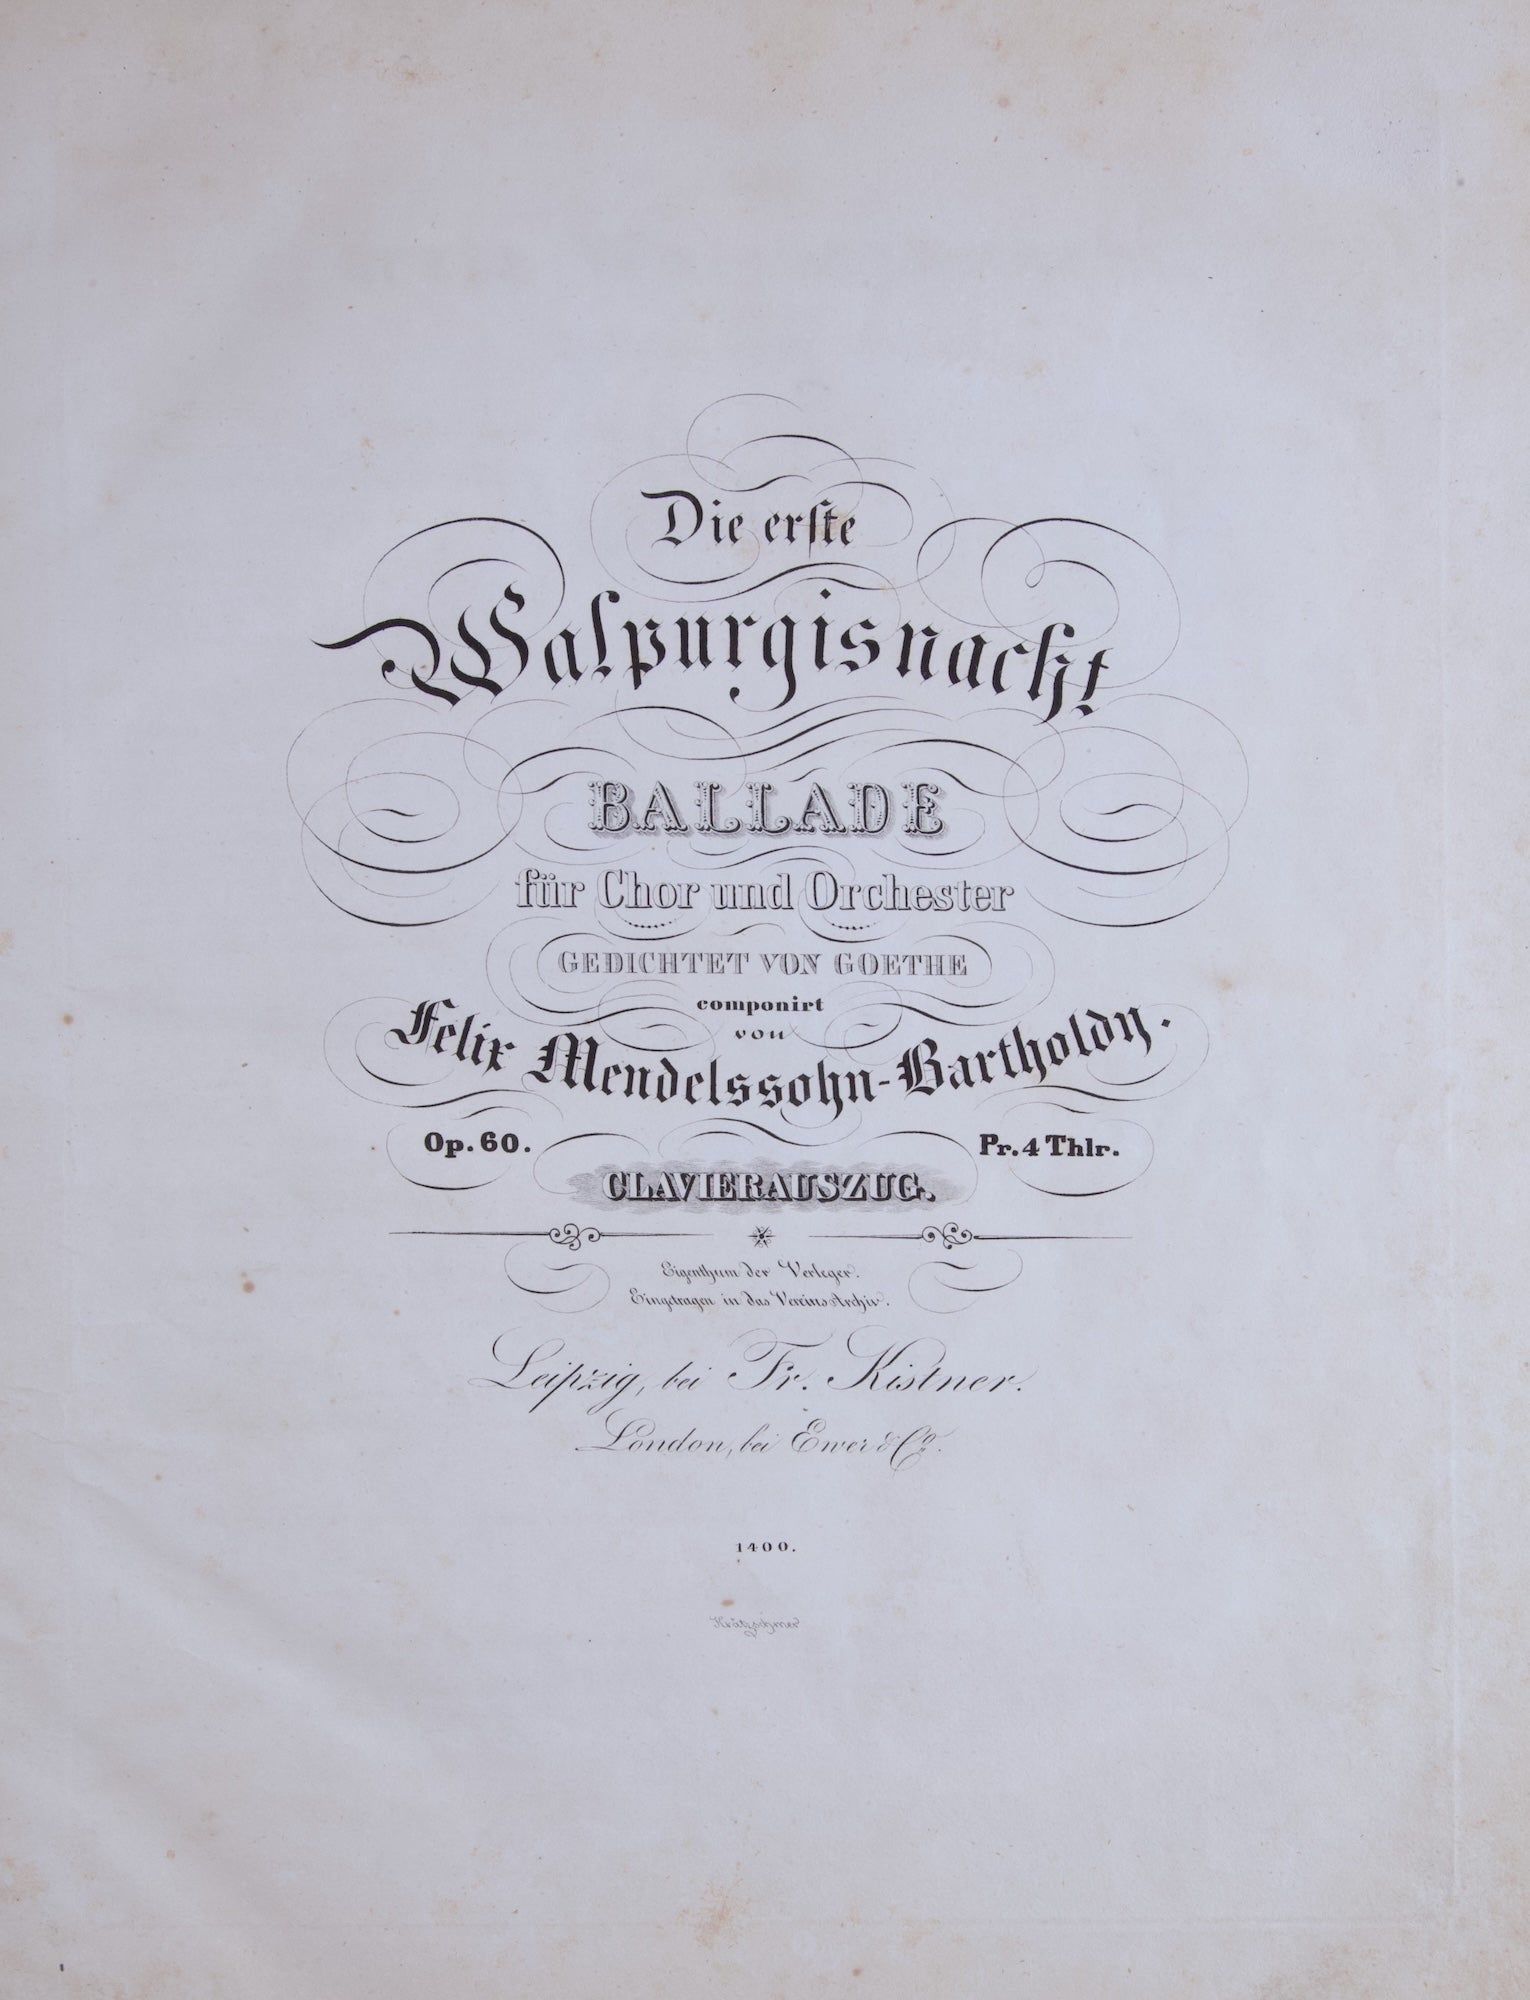 Die erſte
Walpurgisnacht
BALLADE
für Chor und Orchester
GEDICHTET VON GOETHE
componirt
von
Felix Mendelssohn-Bartholdy.
Op. 60.
Pr. 4 Thlr.
CLAVIERAUSZUG.
Eigenthum der Verleger.
Eingetragen in das Vereins Archiv.
Leipzig, bei Fr. Kistner.
London, bei Ewer & Co.
1400.
Krätzschmer